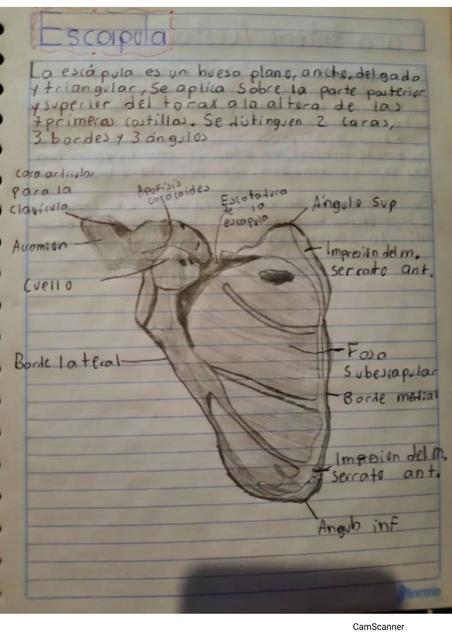 Escapula
La escápula es un hueso plano, ancho, delgado
y triangular, Se aplica sobre la parte posterior
y superior del torax a la altura de las
7 primeras costillas. Se distinguen 2 caras,
3 bordes y 3 ángulos
cara articular
para la
clavicula
Apofisis
coracoides
Escotadura
de la
escapula
Ángulo Sup
Acromion
Impresion del m.
serrato ant.
Cuello
Borde lateral
Fosa
Subescapular
Borde medial
Impresion del m.
serrato ant.
Angulo inf
Norma
CamScanner